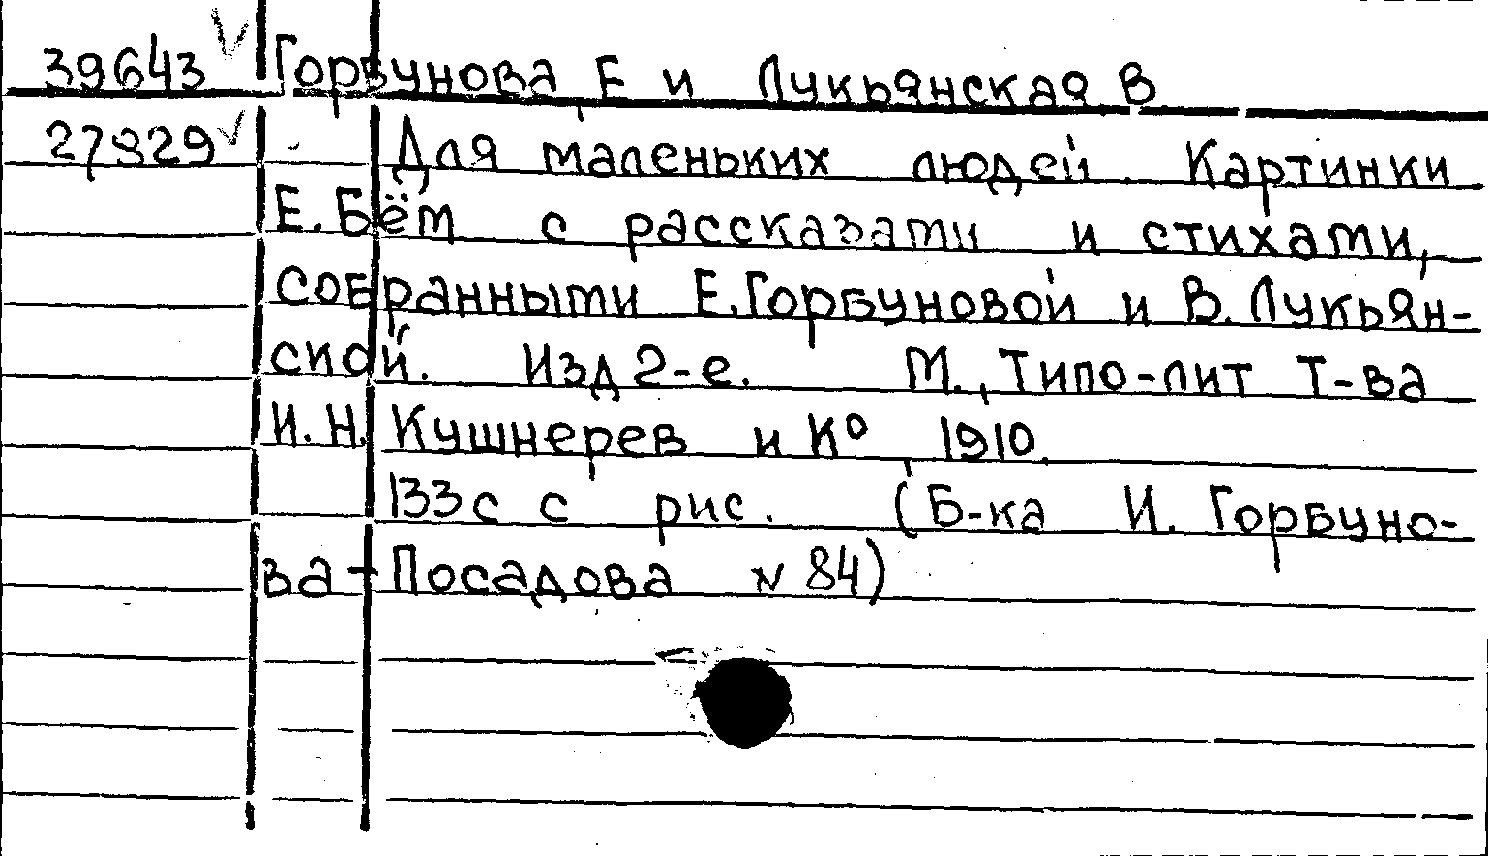 39643 V Горбунова Е и Лукьянская В
27829 V Для маленьких людей. Картинки
Е. Бём с рассказами и стихами,
собранными Е. Горбуновой и В. Лукьян-
ской. Изд 2-е. М., Типо-лит Т-ва
И. Н. Кушнерев и К° 1910.
133 с с рис. (Б-ка И. Горбуно-
ва-Посадова № 84)